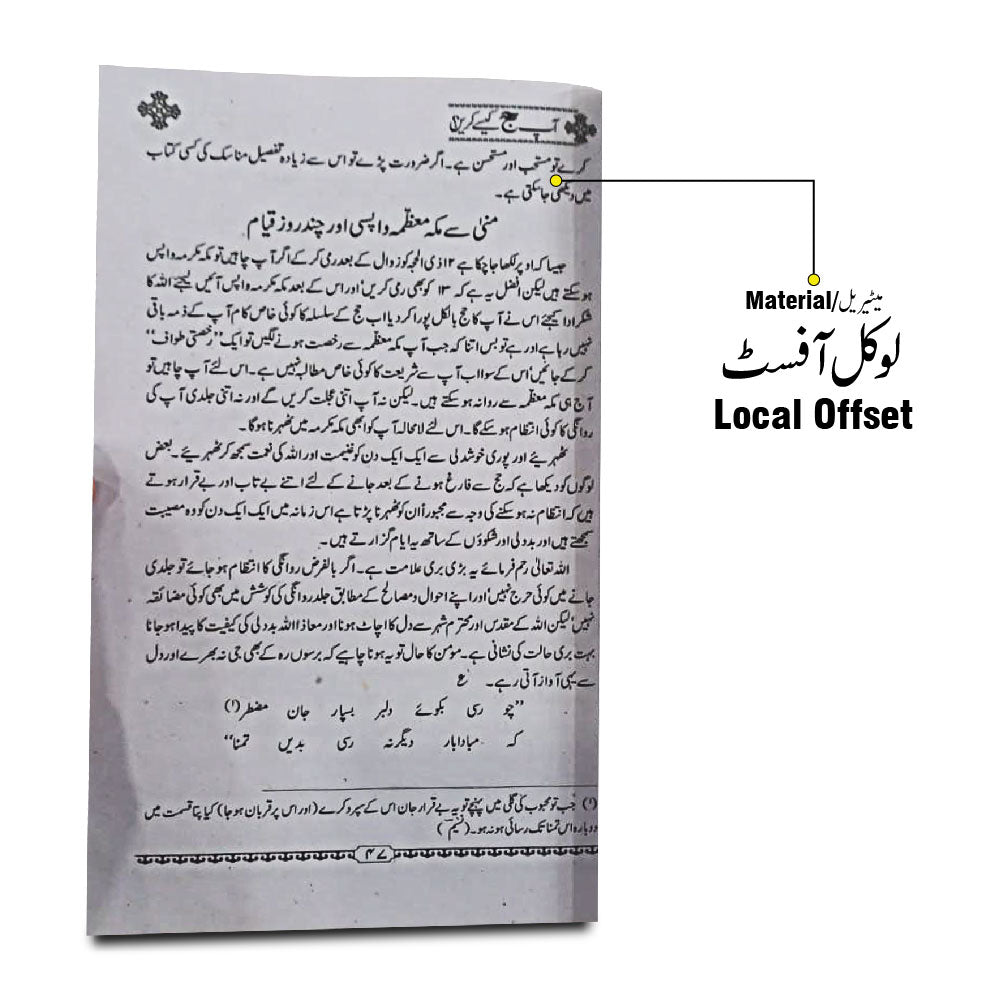 آپ حج کیسے کریں
کرے تو مستحب اور مستحسن ہے۔ اگر ضرورت پڑے تو اس سے زیادہ تفصیل مناسک کی کسی کتاب
میں دیکھی جاسکتی ہے۔
منیٰ سے مکہ معظمہ واپسی اور چند روز قیام
جیسا کہ اوپر لکھا جاچکا ہے ۱۲ ذی الحجہ کو زوال کے بعد رمی کر کے اگر آپ چاہیں تو مکہ مکرمہ واپس
ہوسکتے ہیں لیکن افضل یہ ہے کہ ۱۳ کو بھی رمی کریں اور اس کے بعد مکہ مکرمہ واپس آئیں لیجئے اللہ کا
شکر ادا کیجئے اس نے آپ کا حج بالکل پورا کردیا اب حج کے سلسلہ کا کوئی خاص کام آپ کے ذمہ باقی
نہیں رہا ہے اور ہے تو بس اتنا کہ جب آپ مکہ معظمہ سے رخصت ہونے لگیں تو ایک ’’رخصتی طواف‘‘
کر کے جائیں اس کے سوا اب آپ سے شریعت کا کوئی خاص مطالبہ نہیں ہے۔ اس لئے آپ چاہیں تو
آج ہی مکہ معظمہ سے روانہ ہوسکتے ہیں۔ لیکن نہ آپ اتنی عجلت کریں گے اور نہ اتنی جلدی آپ کی
روانگی کا کوئی انتظام ہوسکے گا۔ اس لئے لامحالہ آپ کو ابھی مکہ مکرمہ میں ٹھہرنا ہوگا۔
ٹھہریئے اور پوری خوشدلی سے ایک ایک دن کو غنیمت اور اللہ کی نعمت سمجھ کر ٹھہریئے۔ بعض
لوگوں کو دیکھا ہے کہ حج سے فارغ ہونے کے بعد جانے کے لئے اتنے بے تاب اور بے قرار ہوتے
ہیں کہ انتظام نہ ہوسکنے کی وجہ سے مجبوراً ان کو ٹھہرنا پڑتا ہے اس زمانہ میں ایک ایک دن کو وہ مصیبت
سمجھتے ہیں اور بددلی اور شکوؤں کے ساتھ یہ ایام گزارتے ہیں۔
اللہ تعالیٰ رحم فرمائے یہ بڑی بری علامت ہے۔ اگر بالفرض روانگی کا انتظام ہوجائے تو جلدی
جانے میں کوئی حرج نہیں اور اپنے احوال و مصالح کے مطابق جلد روانگی کی کوشش میں بھی کوئی مضائقہ
نہیں لیکن اللہ کے مقدس اور محترم شہر سے دل کا اچاٹ ہونا اور معاذ اللہ بددلی کی کیفیت کا پیدا ہوجانا
بہت بری حالت کی نشانی ہے۔ مؤمن کا حال تو یہ ہونا چاہیے کہ برسوں رہ کے بھی جی نہ بھرے اور دل
سے یہی آواز آتی رہے۔ ع
’’چو رسی بکوئے دلبر بسپار جان مضطر(۱)
کہ مبادا بار دیگر نہ رسی بدیں تمنا‘‘
(۱) جب تو محبوب کی گلی میں پہنچے تو یہ بے قرار جان اس کے سپرد کرے (اور اس پر قربان ہوجا) کیا پتا قسمت میں
دوبارہ اس تمنا تک رسائی ہو نہ ہو۔ (نسیم)
۴۷
Material/میٹیریل
لوکل آفسٹ
Local Offset